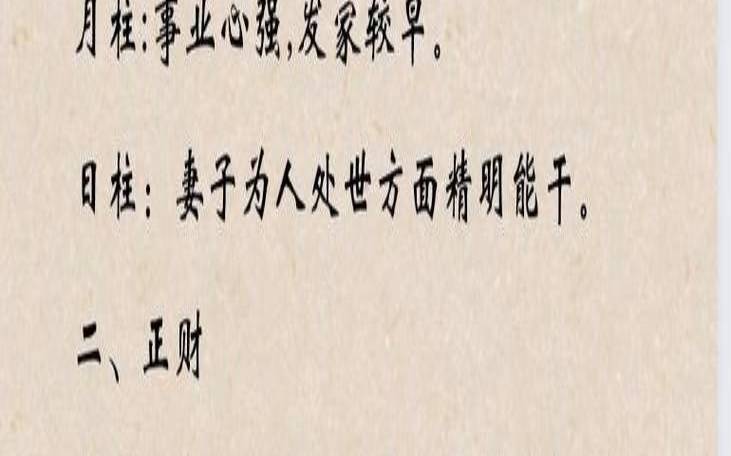 月柱:事业心强,发家较早。
日柱：妻子为人处世方面精明能干。
二、正财